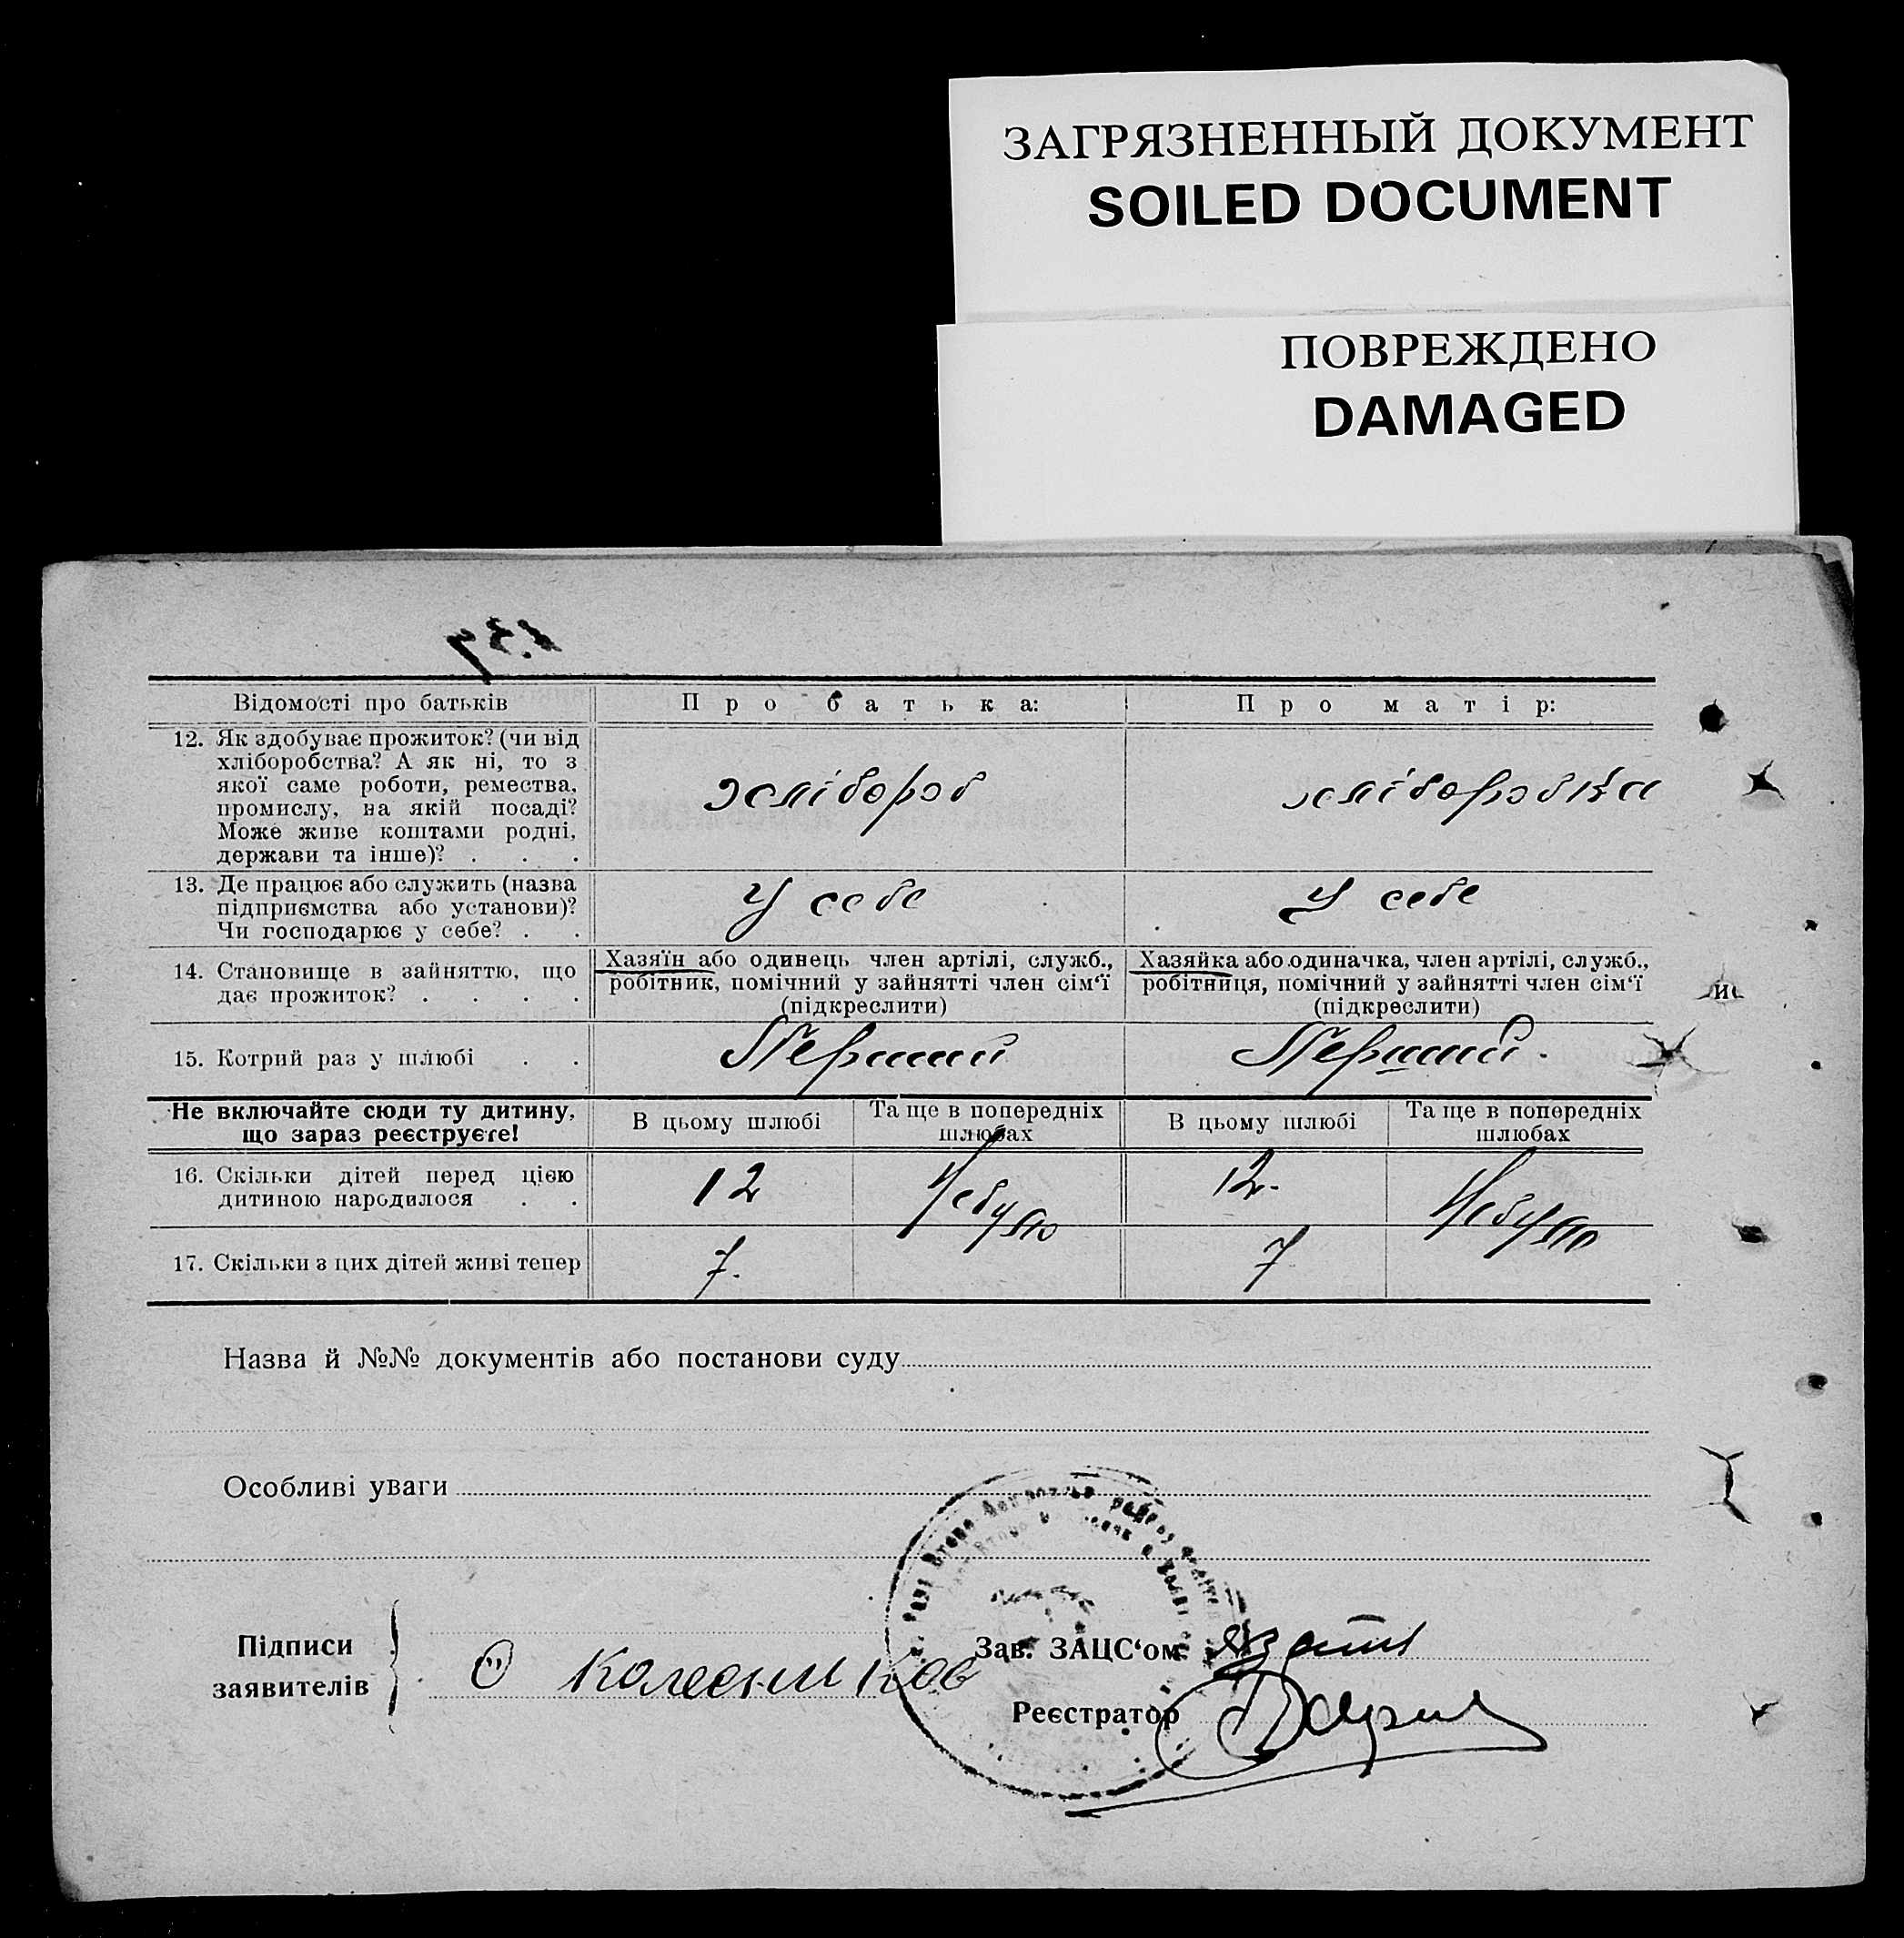 ЗАГРЯЗНЕННЫЙ ДОКУМЕНТ
SOILED DOCUMENT
ПОВРЕЖДЕНО
DAMAGED
Відомості про батьків
Про батька:
Про матір:
12. Як здобуває прожиток? (чи від
хліборобства? А як ні, то з
якої саме роботи, ремества,
промислу, на якій посаді?
Може живе коштами родні,
держави та інше)? . . .
хлібороб
хліборобка
13. Де працює або служить (назва
підприємства або установи)?
Чи господарює у себе? . .
У себе
У себе
14. Становище в зайняттю, що
дає прожиток? . . . .
Хазяїн або одинець член артілі, служб.,
робітник, помічний у зайнятті член сім‘ї
(підкреслити)
Хазяйка або одиначка, член артілі, служб.,
робітниця, помічний у зайнятті член сім‘ї
(підкреслити)
15. Котрий раз у шлюбі . .
Перший
Перший.
Не включайте сюди ту дитину,
що зараз реєструєте!
В цьому шлюбі
Та ще в попередніх
шлюбах
В цьому шлюбі
Та ще в попередніх
шлюбах
16. Скільки дітей перед цією
дитиною народилося . .
12
Небуло
12.
Небуло
17. Скільки з цих дітей живі тепер
7.
7
Назва й №№ документів або постанови суду
Особливі уваги
Підписи
заявителів
О Колесников
Зав. ЗАЦС‘ом
Реєстратор